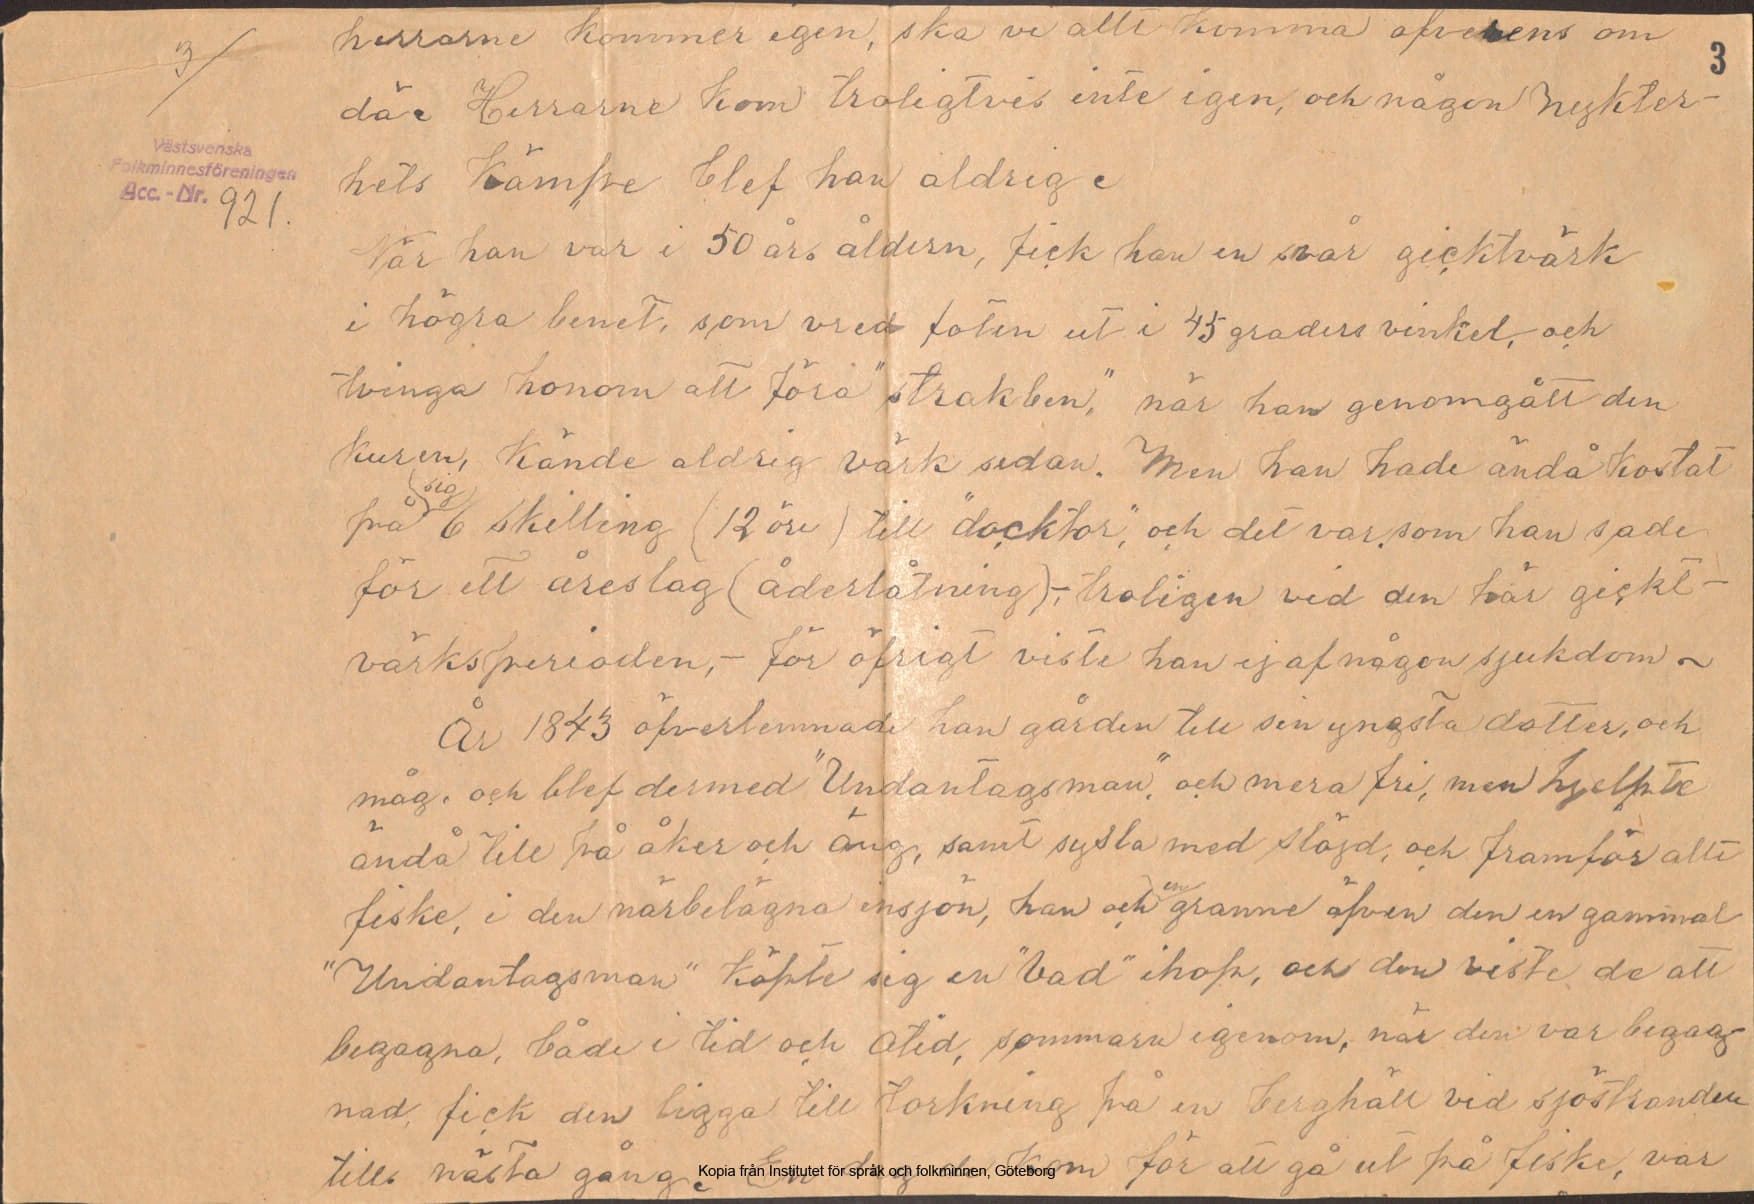 3/
3
Västsvenska
Folkminnesföreningen
Acc.-Nr. 921.
herrarne kommer igen, ska vi allt komma öfverens om
dä. Herrarne kom troligtvis inte igen, och någon Nykter-
hets Kämpe blef han aldrig.
När han var i 50 års åldern, fick han en svår gicktvärk
i högra benet, som vred foten ut i 45 graders vinkel, och
tvinga honom att föra "strakben," när han genomgått den
kuren, kände aldrig värk sedan. Men han hade ändå kostat
på sig 6 skilling (12 öre) till "docktor", och det var som han sade
för ett åreslag (åderlåtning)-, troligen vid den här gickt-
värksperioden, - för öfrigt viste han ej af någon sjukdom ~
År 1843 öfverlemnade han gården till sin yngsta dotter, och
måg. och blef dermed "Undantagsman", och mera fri, men hjelpte
ändå till på åker och äng, samt sysla med slöjd, och framför allt
fiske, i den närbelägna insjön, han och en granne äfven den en gammal
"Undantagsman" köpte sig en "Vad" ihop, och den viste de att
begagna, både i tid och otid, sommarn igenom, när den var begag-
nad, fick den ligga till torkning på en berghäll vid sjöstranden
tills nästa gång. En dag de kom för att gå ut på fiske, var
Kopia från Institutet för språk och folkminnen, Göteborg